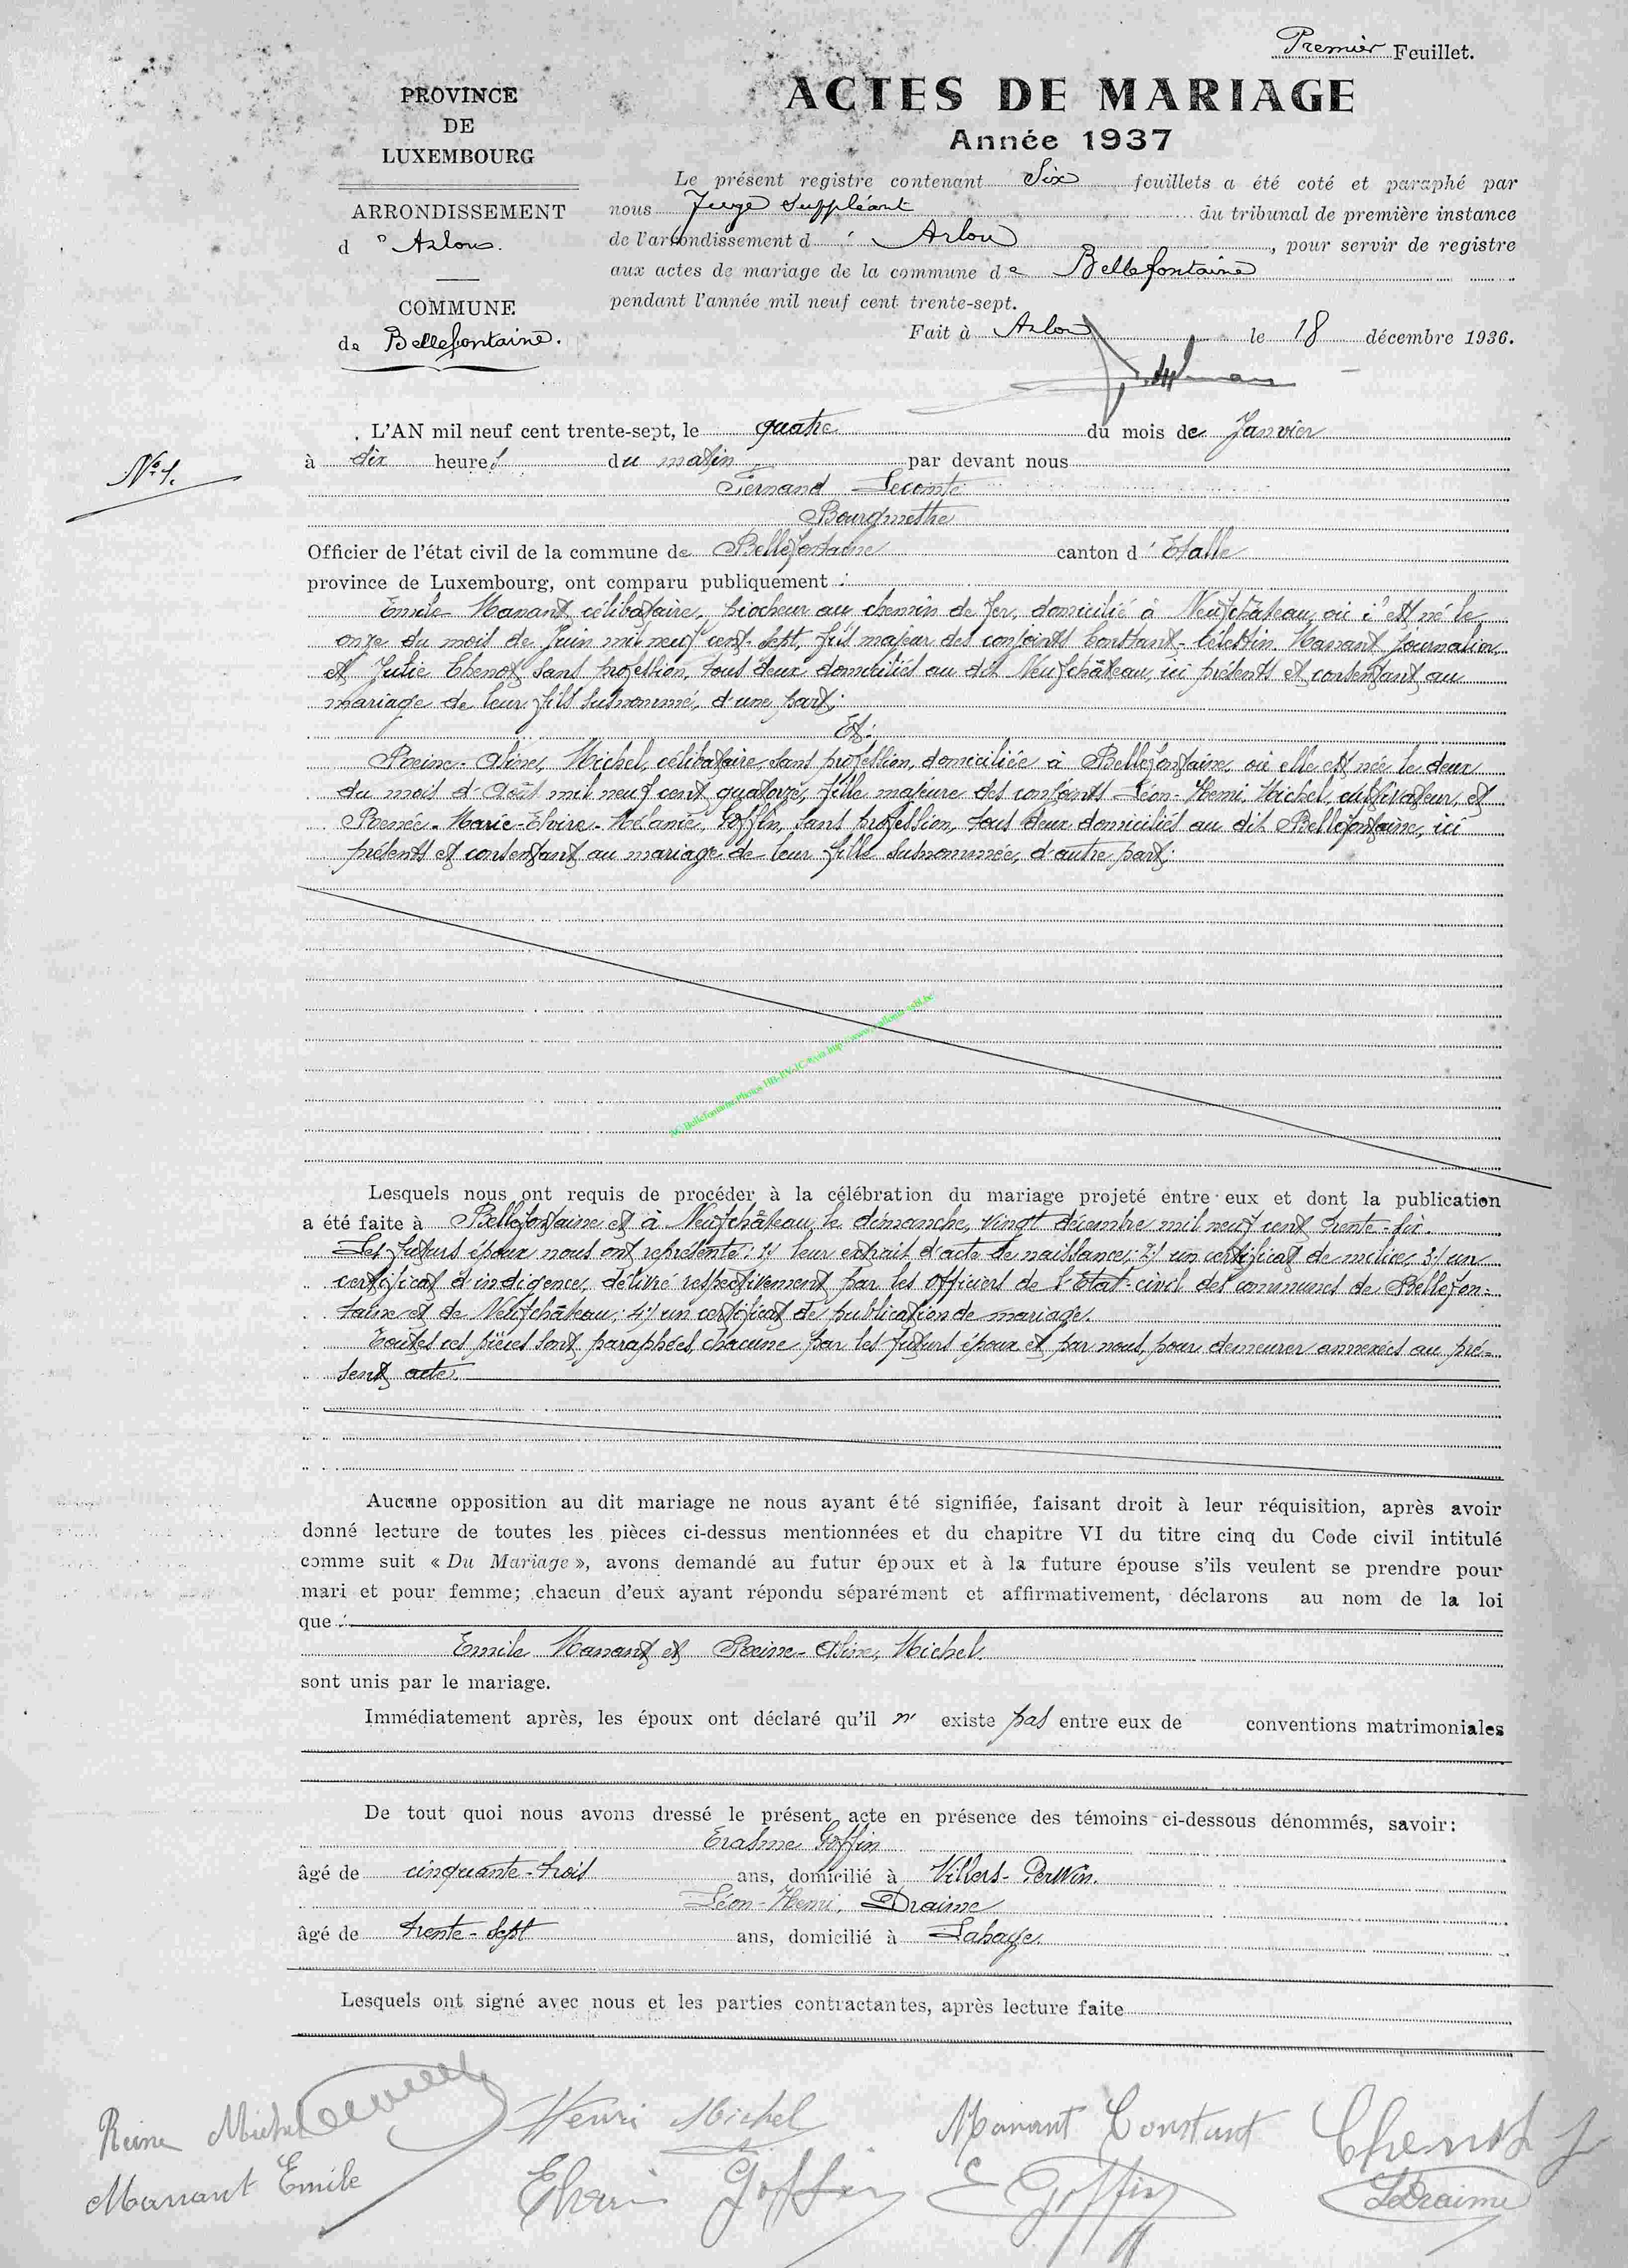 Premier Feuillet.
PROVINCE
DE
LUXEMBOURG
ARRONDISSEMENT
d' Arlon.
COMMUNE
de Bellefontaine.
ACTES DE MARIAGE
Année 1937
Le présent registre contenant Six feuillets a été coté et paraphé par
nous Juge Suppléant du tribunal de première instance
de l'arrondissement d' Arlon, pour servir de registre
aux actes de mariage de la commune de Bellefontaine
pendant l'année mil neuf cent trente-sept.
Fait à Arlon le 18 décembre 1936.
N° 1.
L'AN mil neuf cent trente-sept, le quatre du mois de Janvier
à dix heures du matin par devant nous
Fernand Lecomte
Bourgmestre
Officier de l'état civil de la commune de Bellefontaine canton d' Etalle
province de Luxembourg, ont comparu publiquement :
Emile Manant, célibataire, piocheur au chemin de fer, domicilié à Neufchâteau, où i' est né le
onze du mois de Juin mil neuf cent sept, fils majeur des conjoints Constant-Célestin Manant journalier
et Julie Chenot, sans profession, tous deux domiciliés au dit Neufchâteau, ici présents et consentant au
mariage de leur fils susnommé, d'une part;
Et:
Reine-Aline, Michel, célibataire, sans profession, domiciliée à Bellefontaine, où elle est née le deux
du mois d'Août mil neuf cent quatorze, fille majeure des conjoints Léon-Henri, Michel, cultivateur, et
Renée-Marie-Elvire-Mélanie, Goffin, sans profession, tous deux domiciliés au dit Bellefontaine, ici
présents et consentant au mariage de leur fille susnommée, d'autre part;
AC Bellefontaine Photos
Lesquels nous ont requis de procéder à la célébration du mariage projeté entre eux et dont la publication
a été faite à Bellefontaine et à Neufchâteau, le dimanche, vingt décembre mil neuf cent trente-six.
Les futurs époux nous ont représenté: 1/ leur extrait d'acte de naissance; 2/ un certificat de milice; 3/ un
certificat d'indigence, délivré respectivement par les officiers de l'Etat-civil des communes de Bellefon=
taine et de Neufchâteau; 4/ un certificat de publication de mariage.
Toutes ces pièces sont paraphées chacune par les futurs époux et par nous, pour demeurer annexées au pré=
sent acte.
Aucune opposition au dit mariage ne nous ayant été signifiée, faisant droit à leur réquisition, après avoir
donné lecture de toutes les pièces ci-dessus mentionnées et du chapitre VI du titre cinq du Code civil intitulé
comme suit « Du Mariage », avons demandé au futur époux et à la future épouse s'ils veulent se prendre pour
mari et pour femme; chacun d'eux ayant répondu séparément et affirmativement, déclarons au nom de la loi
que :
Emile Manant et Reine-Aline, Michel.
sont unis par le mariage.
Immédiatement après, les époux ont déclaré qu'il n' existe pas entre eux de conventions matrimoniales
De tout quoi nous avons dressé le présent acte en présence des témoins ci-dessous dénommés, savoir:
Erasme Goffin
âgé de cinquante-trois ans, domicilié à Villers-Perwin.
Léon-Henri, Draime
âgé de trente-sept ans, domicilié à Lahage.
Lesquels ont signé avec nous et les parties contractantes, après lecture faite
Reine Michel Henri Michel Manant Constant Chenot J
Manant Emile Elvire Goffin E Goffin LDraime